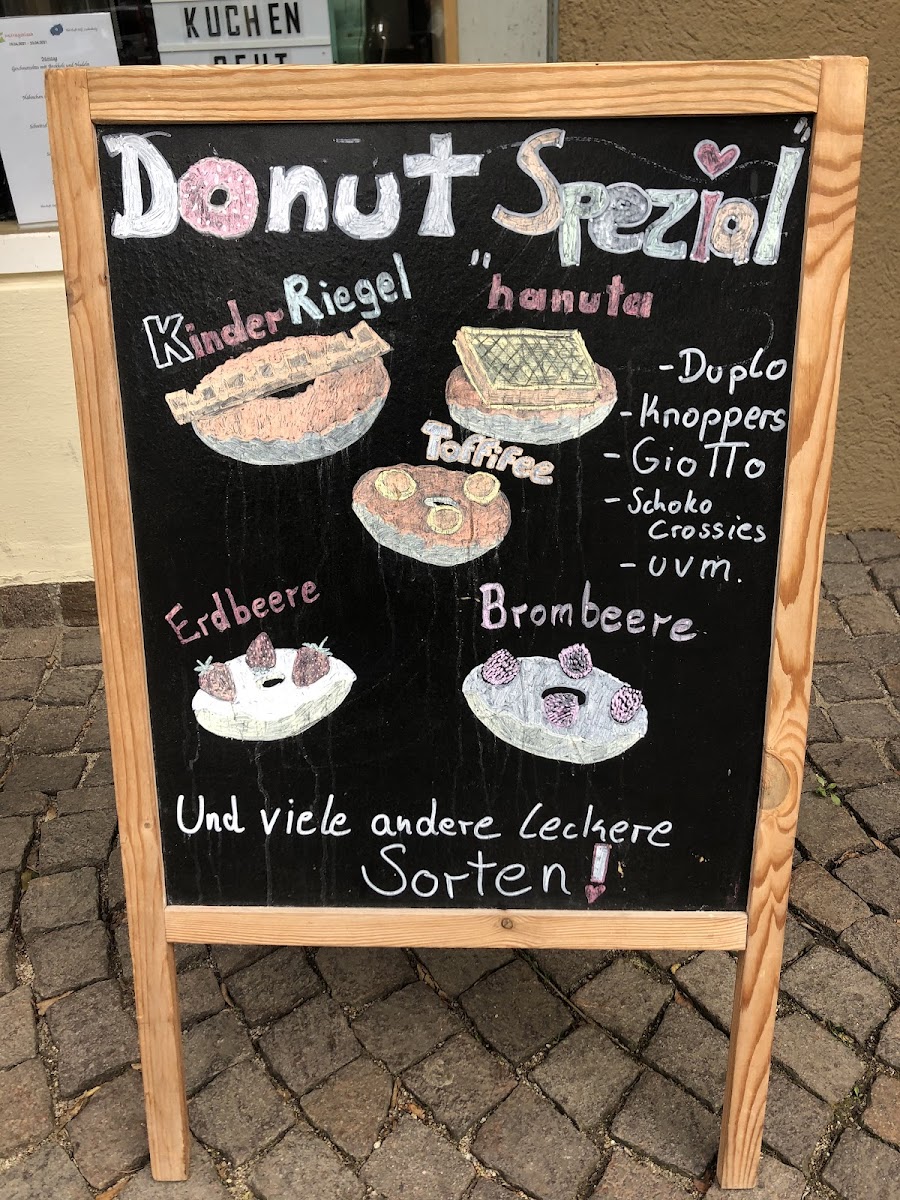 KUCHEN
Donut Spezial"
Kinder Riegel
"hanuta
Toffifee
- Duplo
- Knoppers
- Giotto
- Schoko
Crossies
- uvm.
Erdbeere
Brombeere
Und viele andere leckere
Sorten!